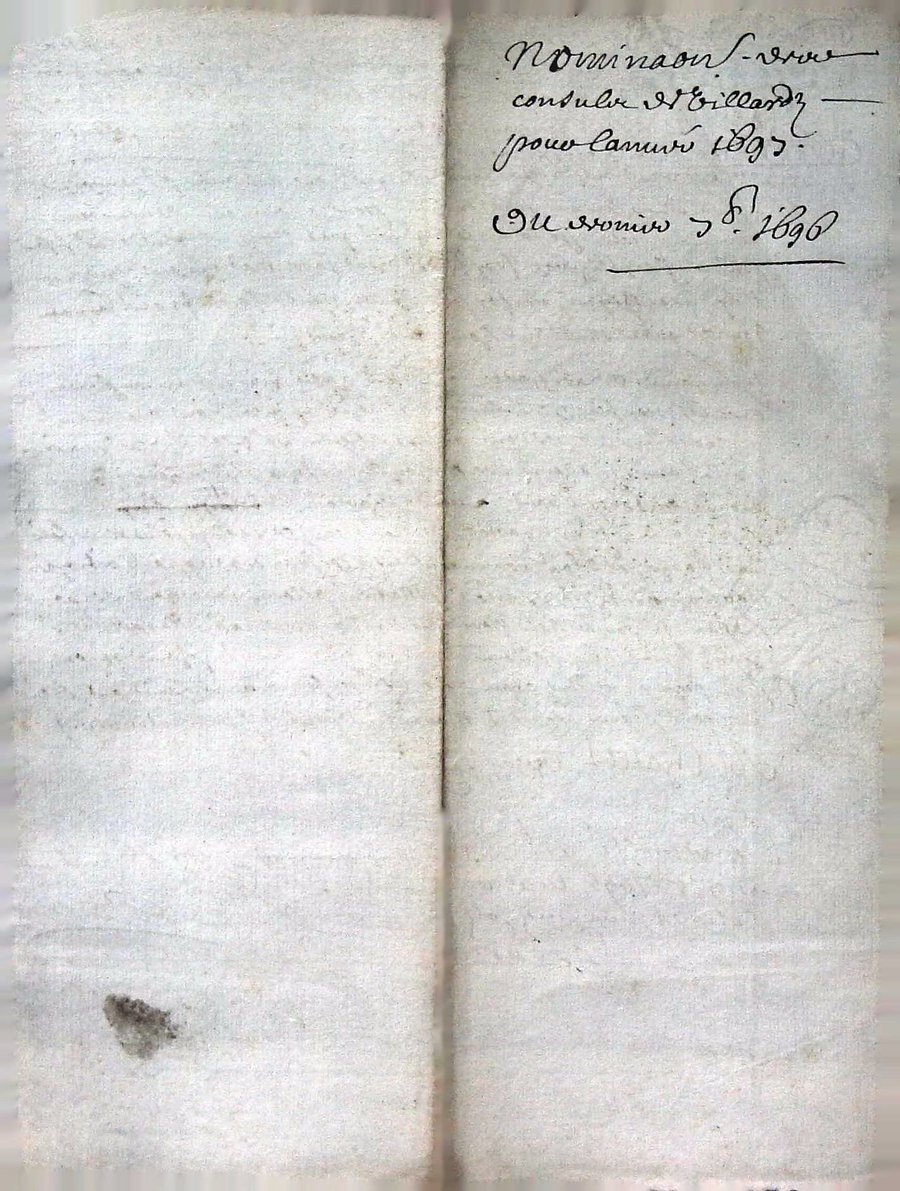 Nominaon des
consulz de Villardz
pour lannée 1697.
Du dernier 7br. 1696